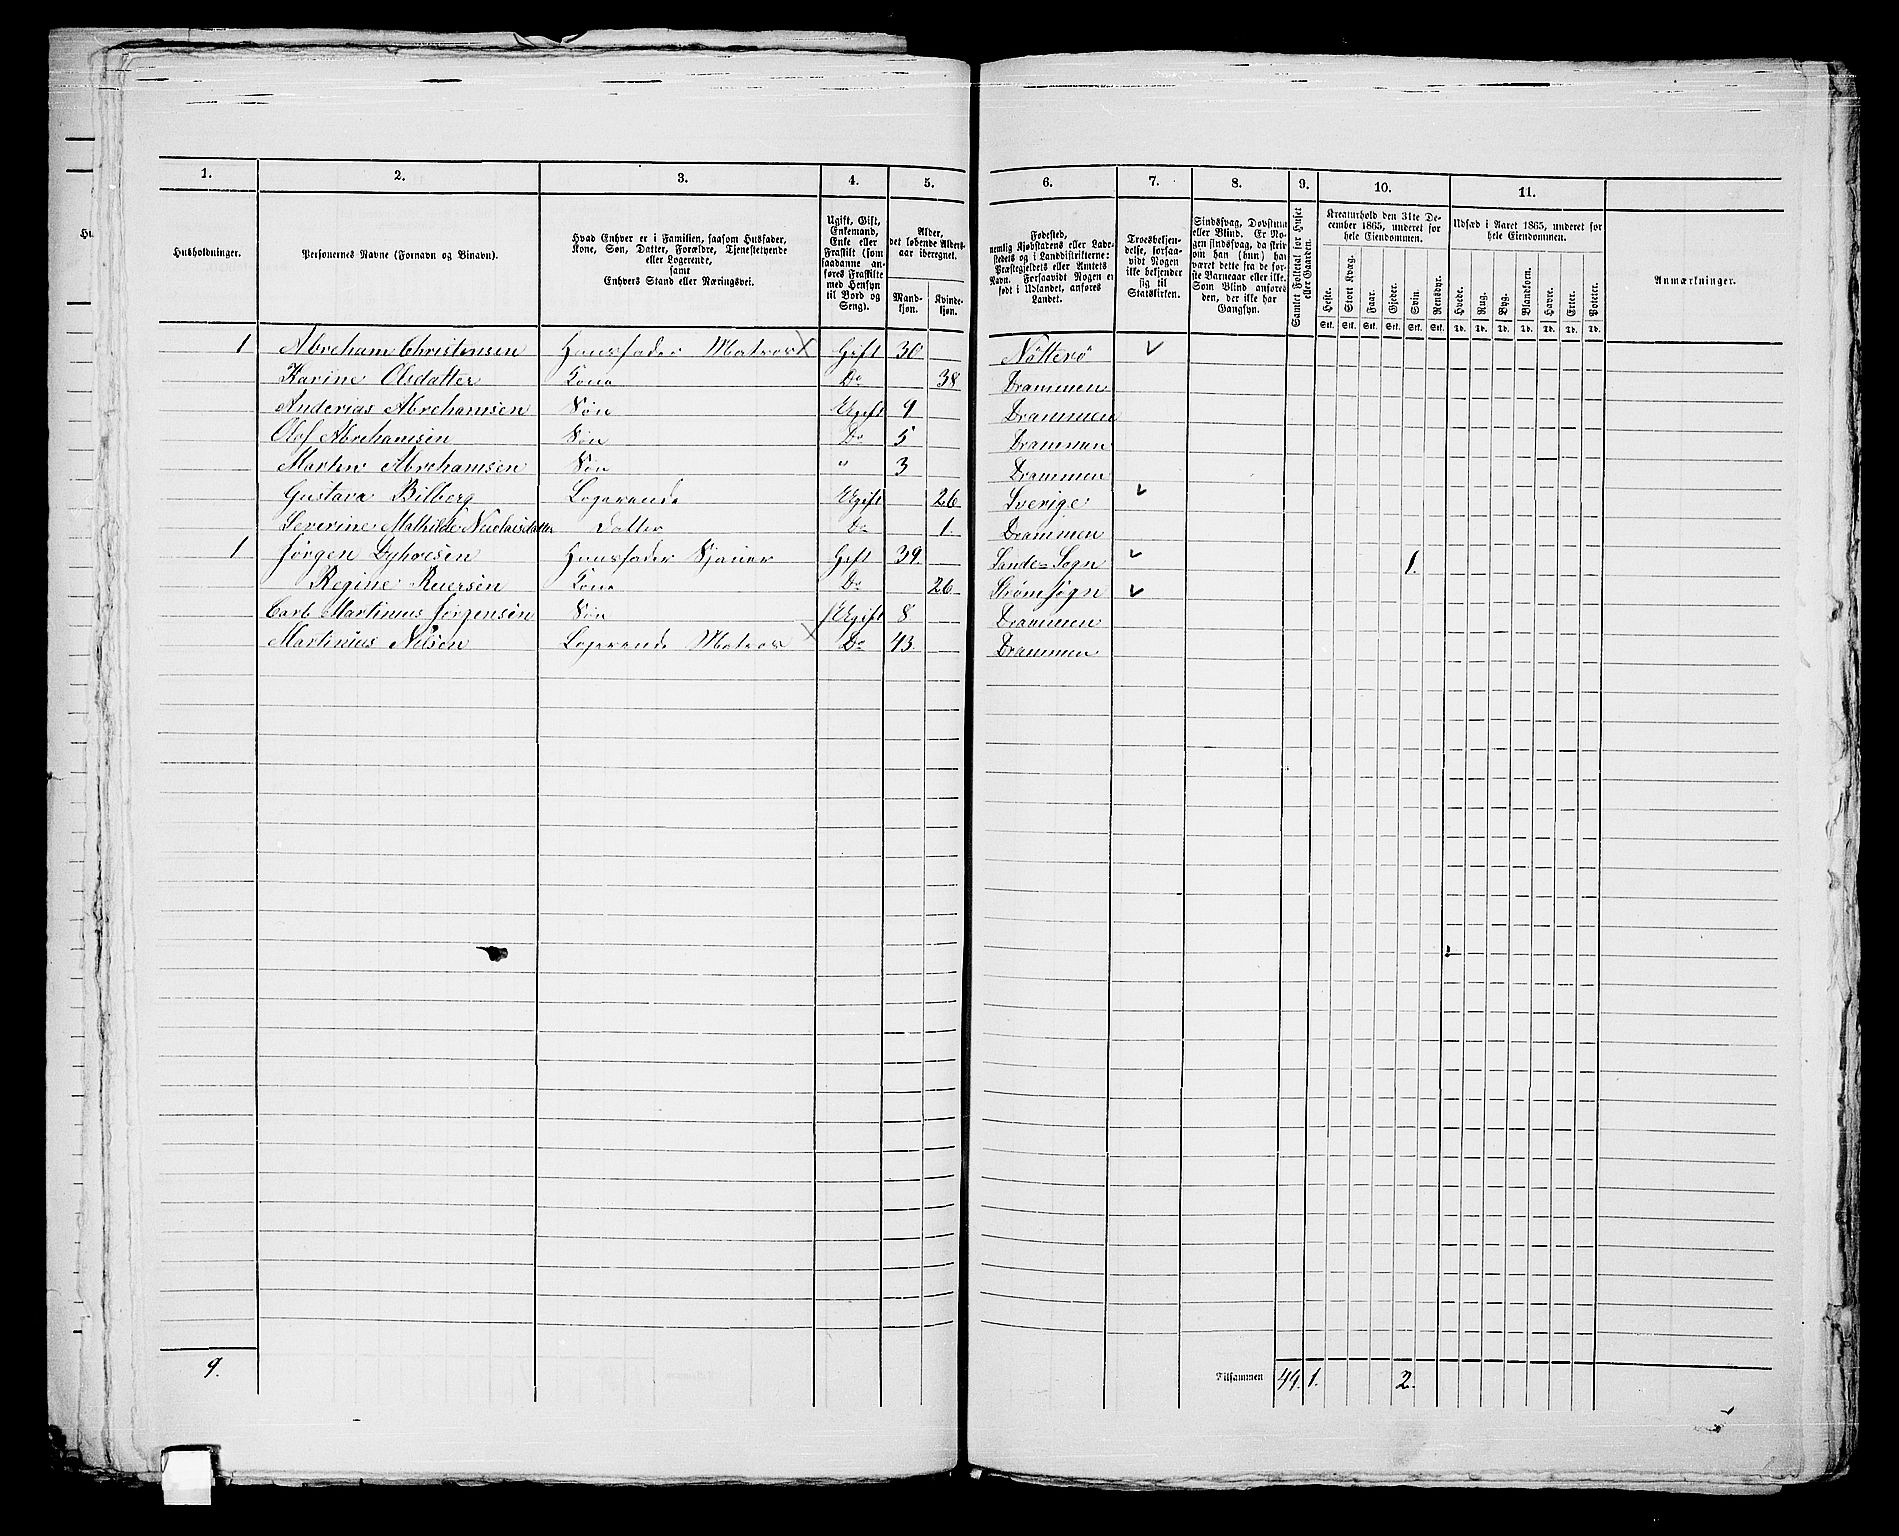 1. 2. 3. 4. 5. 6. 7. 8. 9. 10. 11.
Husholdninger. Personernes Navne (Fornavn og Binavn). Hvad Enhver er i Familien, saasom Husfader, Kone, Søn, Datter, Forældre, Tjenestetyende eller Logerende, samt Enhvers Stand eller Næringsvei. Ugift, Gift, Enkemand, Enke eller Fraskilt (som saadanne anføres Fraskilte med Hensyn til Bord og Seng). Alder, det løbende Alders-aar iberegnet. Mand-kjøn. Kvinde-kjøn.
Fødested, nemlig Kjøbstadens eller Ladestedets og i Landdistrikterne: Præstegjeldets eller Amtets Navn. Forsaavidt Nogen er født i Udlandet, anføres Landet. Troesbekjendelse, forsaavidt Nogen ikke bekjender sig til Statskirken. Sindssvag, Døvstum eller Blind. Er Nogen sindssvag, da skrives om han (hun) har været dette fra de første Barneaar eller ikke. Som Blind anføres den, der ikke har Gangsyn. Samlet Folketal for Huset eller Gaarden. Kreaturhold den 31te December 1865, underet for hele Eiendommen. Udsæd i Aaret 1865, underet for hele Eiendommen. Anmærkninger.
Heste. Stort Kvæg. Faar. Gjeder. Svin. Rensdyr. Hvede. Rug. Byg. Blandkorn. Havre. Erter. Poteter.
Stk. Stk. Stk. Stk. Stk. Stk. Td. Td. Td. Td. Td. Td. Td.
1 Abreham Christensen Huusfader Matros X Gift 36 Nötterö
Karine Olsdatter Kone Do 38 Drammen
Anderias Abrehamsen Søn Ugift 9 Drammen
Olof Abrehamsen Søn Do 5 Drammen
Marten Abrehamsen Søn " 3 Drammen
Gustava Bilberg Logerende Ugift 26 Sverige
Severine Mathilde Nicolaisdatter Datter Do 1 Drammen
1 Jørgen Huusfader Sjauer Gift 39. Sande-Sogn 1.
Regine Kone Do 26 Strømsøgn
Carl Martinius Jørgensen Søn Ugift 8 Drammen
Martinius Nilsen Logerende Matros X Do 43 Drammen
9. Tilsammen 44. 1. 2.